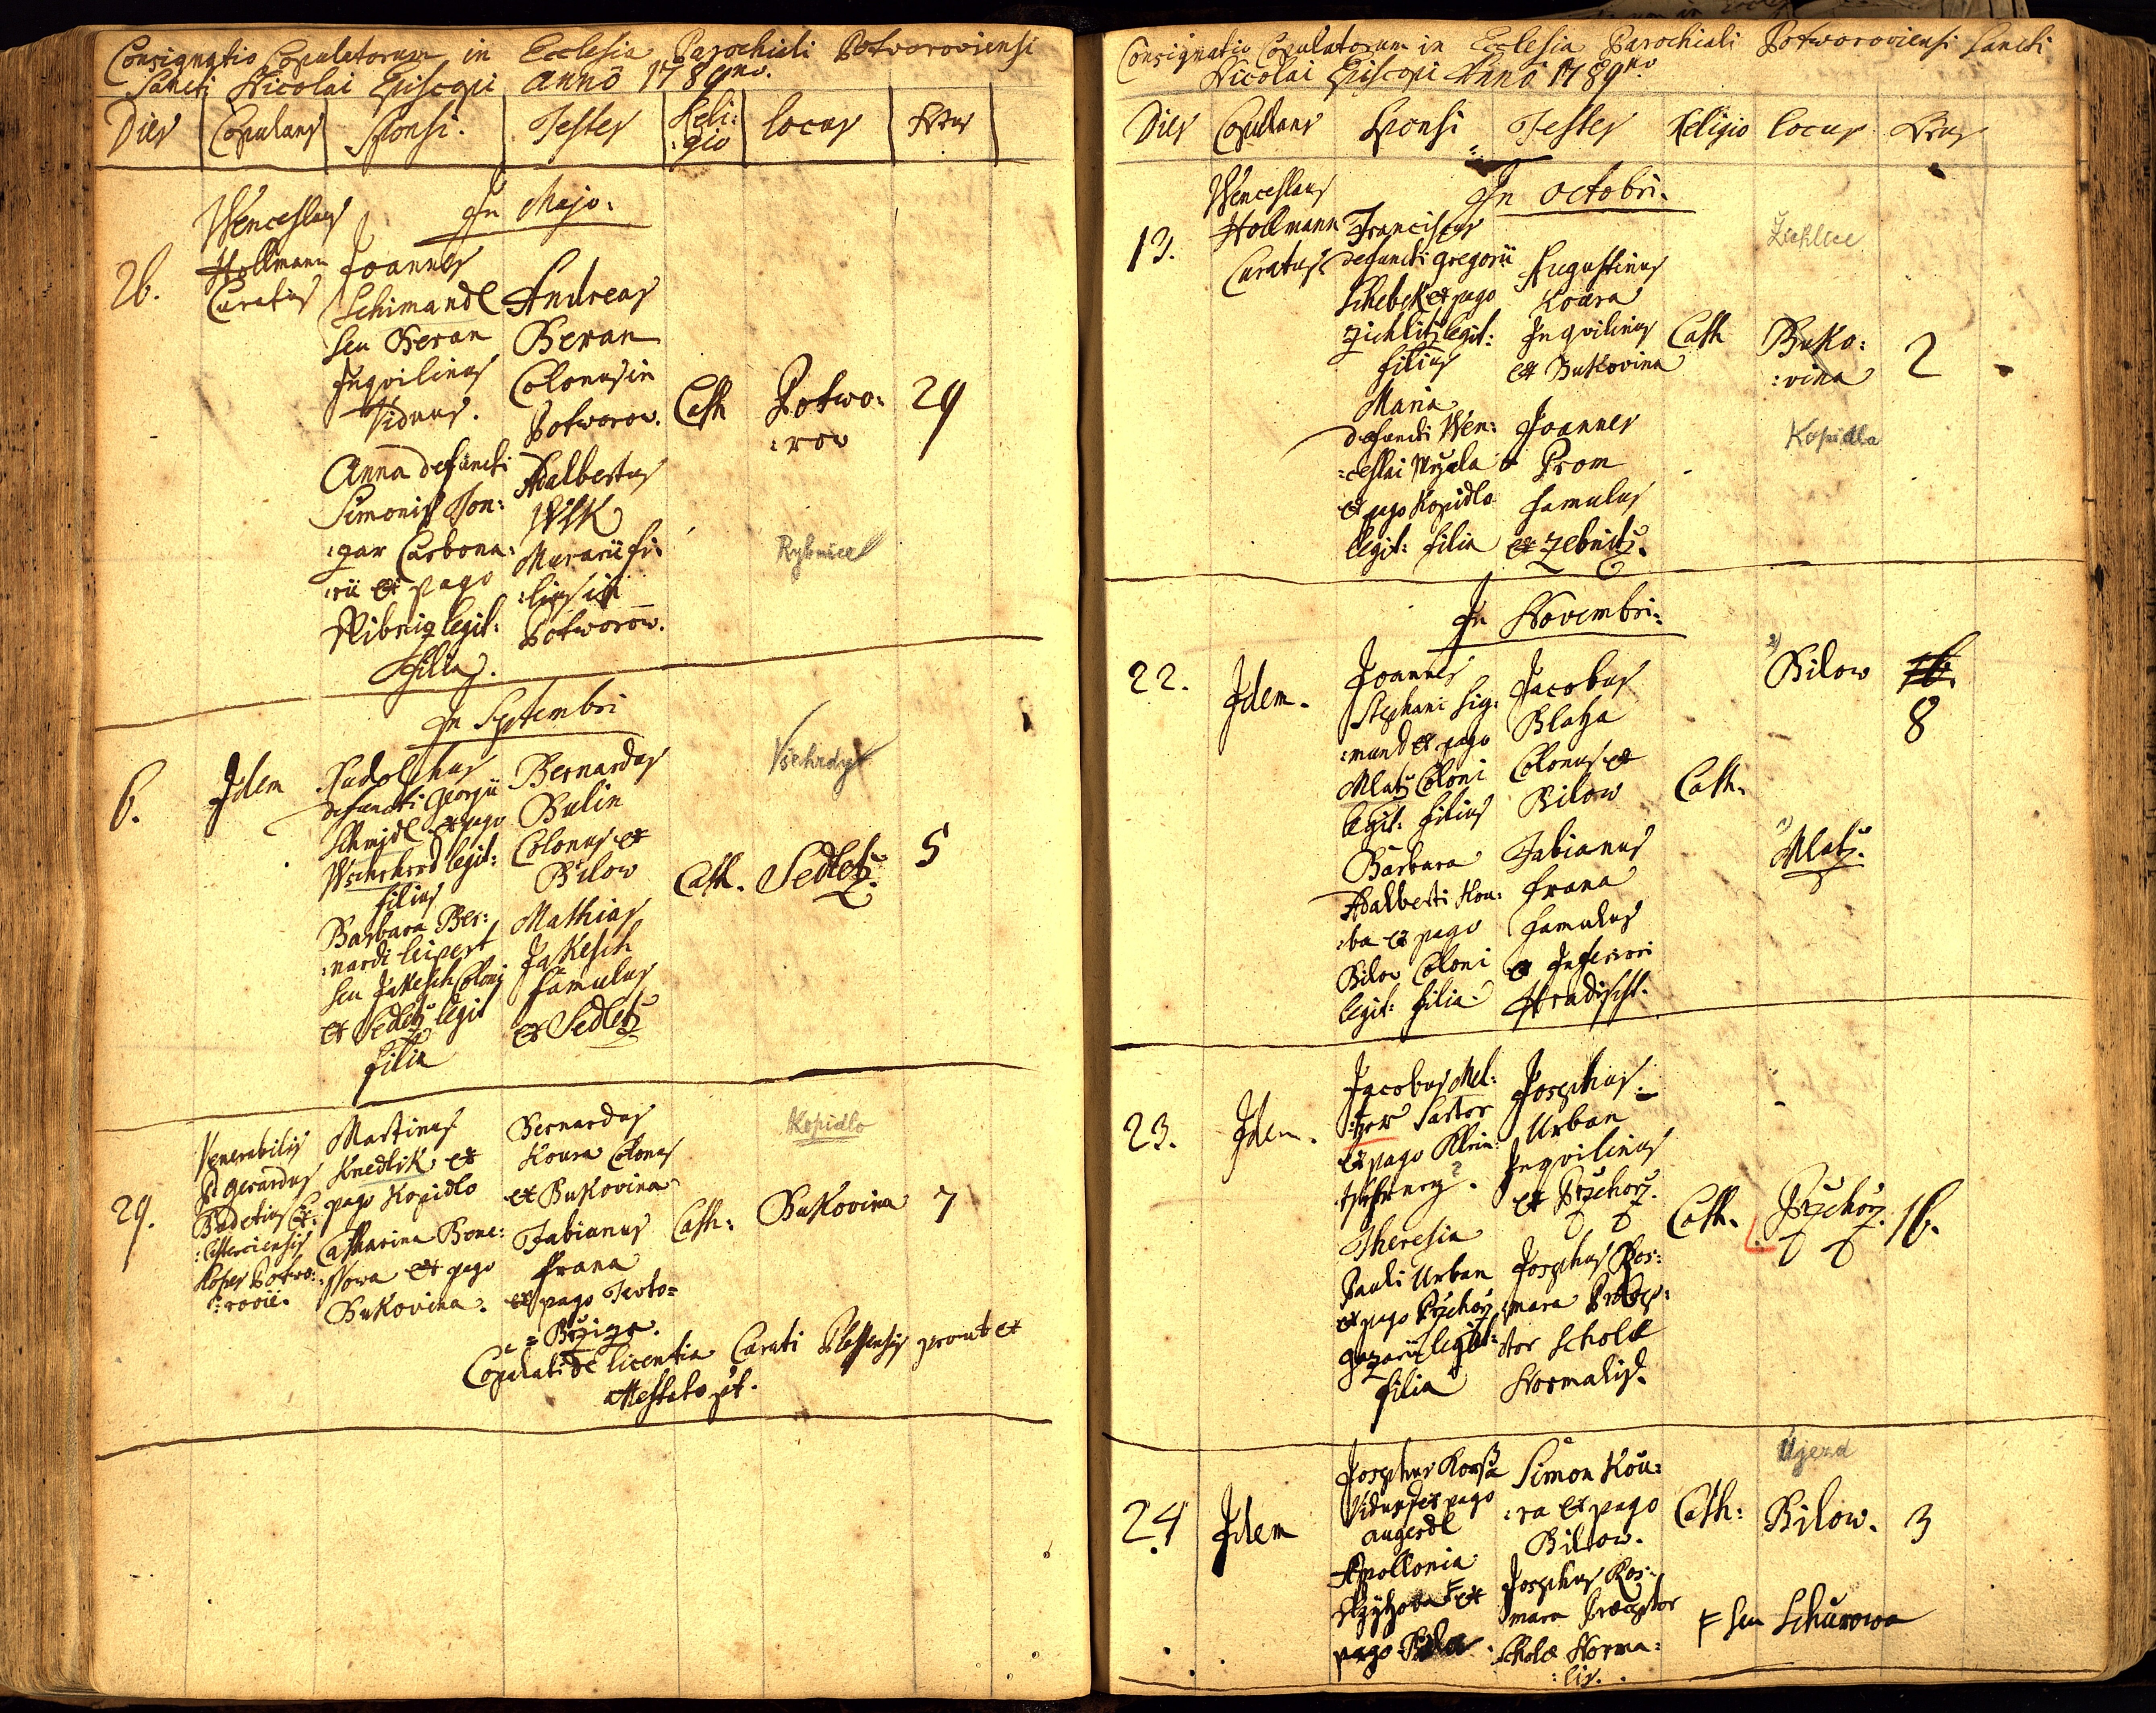 Consignatio Copulatorum in Ecclesia Parochiali Potvoroviensi
Sancti Nicolai Episcopi Anno 1789no.
Dies Copulans Sponsi. Testes Reli:
:gio locus Nrus
In Majo:
26.
Wenceslaus
Hollmann
Curatus
Joannes
Schimandl
seu Beran
Inqvilinus
Viduus.
Anna defuncti
Simonis
:gar Carbona:
:rii ex pago
Ribniz legit:
Filia.
Andreas
Beran
Colonus in
Potworow.
Adalbertus
Wlk
Murarii fi:
:lius in
Potworow.
Cath
Potwo:
:row
29
Rybnice
In Septembri
6.
Idem
Rudolphus
defuncti Georgii
Schmidl ex pago
legit:
filius
Barbara Ber:
:nardi leipert
seu Jakesch Coloni
ex Sedletz legit
filia
Bernardus
Bulin
Colonus ex
Bilow
Mathias
Jakesch
famulus
ex Sedletz
Cath.
Všehrdy
Sedletz.
5
29.
Venerabilis
P Gerardus
:cisterciensis
:rovii.
Martinus
Knedlik ex
pago Kopidlo
Catharina Bone:
:ssowa ex pago
Bukovina.
Bernardus
Koura Colonus
ex Bukovina
Fabianus
frana
ex pago Teuto=
Cath:
Kopidlo
Bukovina
7
Copulati de licentia Curati Plassensis prout ex
attestato pt.
Consignatio Copulatorum in Ecclesia Parochiali Potworoviensi Sancti
Nicolai Episcopi Anno 1789no
Dies Copulans Sponsi Testes Religio locus Nrus
In Octobri.
13.
Wenceslaus
Hollmann
Curatus
Franciscus
defuncti Gregorii
Schebek ex pago
Zichlitz legit:
filius
Maria
defuncti Wen:
:ceslai
ex pago Kopidlo
legit: filia
Augustinus
Koura
Inqvilinus
ex Bukovina
Joannes
Prom
famulus
ex Zebnitz.
Cath
Žichlice
Buko:
:vina
Kopidla
2
In Novembri:
22.
Idem.
Joannes
Stephani Sig:
:mund ex pago
Mlatz Coloni
legit: filius
Barbara
Adalberti Kou:
:ba ex pago
Bilow Coloni
legit: filia
Jacobus
Blaha
Colonus ex
Bilow
Fabianus
frana
famulus
ex Inferiori
Hradischt.
Cath.
2) Bilow
1) Mlatz.
8
23.
Idem.
Jacobus Mel:
:tzer Sartor
ex pago Klein:
Theresia
Pauli Urban
ex pago Przehorz
legit:
filia
Josephus
Urban
Inqvilinus
ex Przehorz.
Josephus Kos:
:mara Præcep:
:tor Scholæ
Normalis.
Cath.
Przehorz.
16.
24.
Idem
Josephus
Viduus ex pago
augezdl
Apollonia
F ex
pago
Simon Kou:
:ra ex pago
Bilow.
Josephus Kos:
:mara Præceptor
Scholæ Norma:
:lis.
Cath:
Ujezd
Bilow.
3
F seu Schurowa